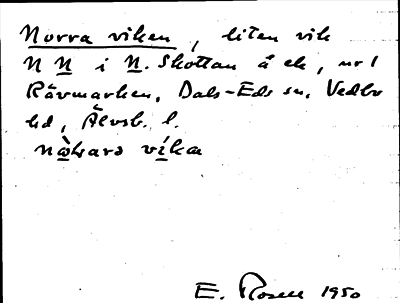 Norra viken, liten vik
N N i N. Skottan å ek, nr 1
Rävmarken, Dals-Eds sn, Vedbo
hd, Älvsb. l.
E. Rosell 1950